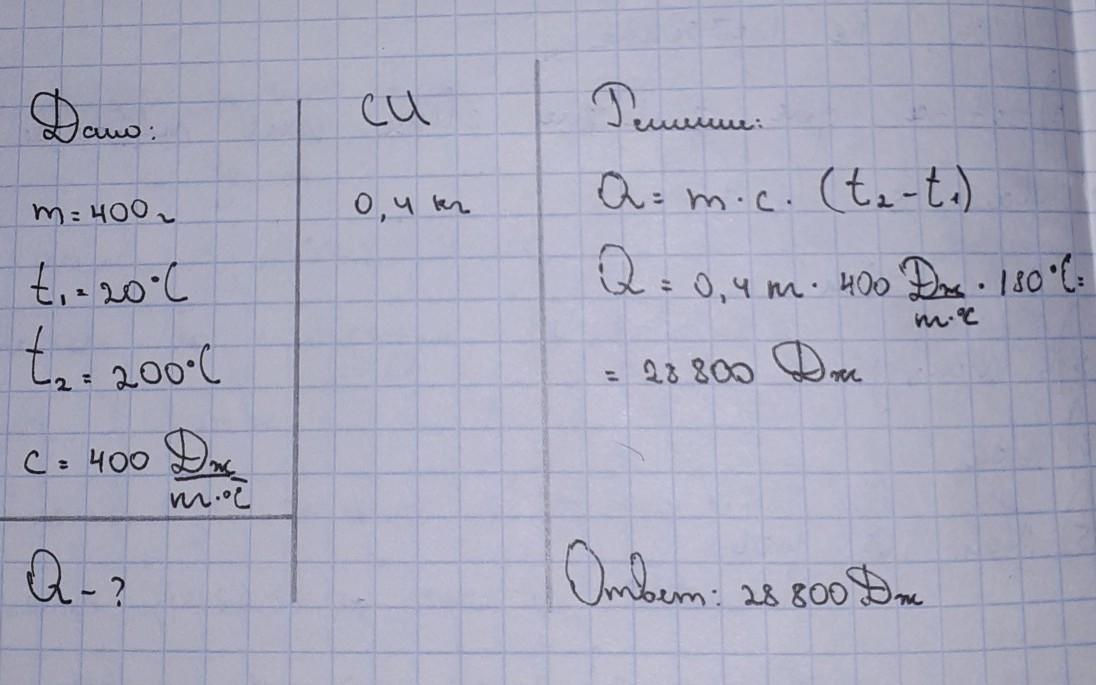 Дано:
m = 400 г
t₁ = 20°C
t₂ = 200°C
c = 400 Дж/m·°C
Q - ?
СИ
0,4 кг
Решение:
Q = m · c · (t₂ - t₁)
Q = 0,4 m · 400 Дж/m·°C · 180°C =
= 28 800 Дж
Ответ: 28 800 Дж